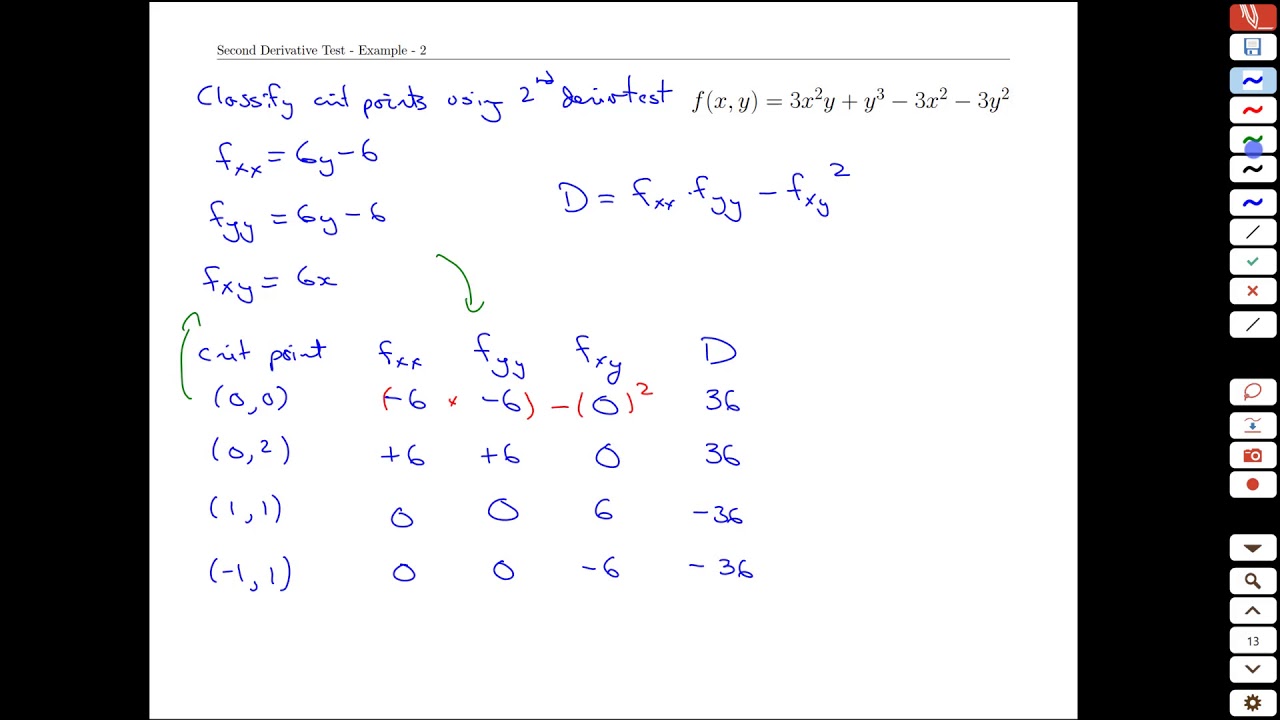 Second Derivative Test - Example - 2
Classify crit points using 2nd deriv test f(x, y) = 3x²y + y³ − 3x² − 3y²
fxx = 6y − 6
D = fxx · fyy − fxy²
fyy = 6y − 6
fxy = 6x
crit point fxx fyy fxy D
(0,0) (−6 × −6) − (0)² 36
(0,2) +6 +6 0 36
(1,1) 0 0 6 −36
(−1,1) 0 0 −6 −36
13